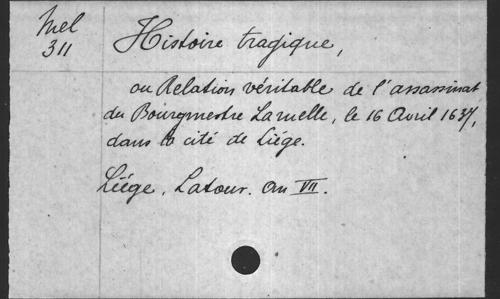 Mel
311
Histoire tragique,
ou Relation véritable de l'assassinat
du Bourgmestre Laruelle, le 16 Avril 1637,
dans la cité de Liége.
Liége, Latour. an VII.